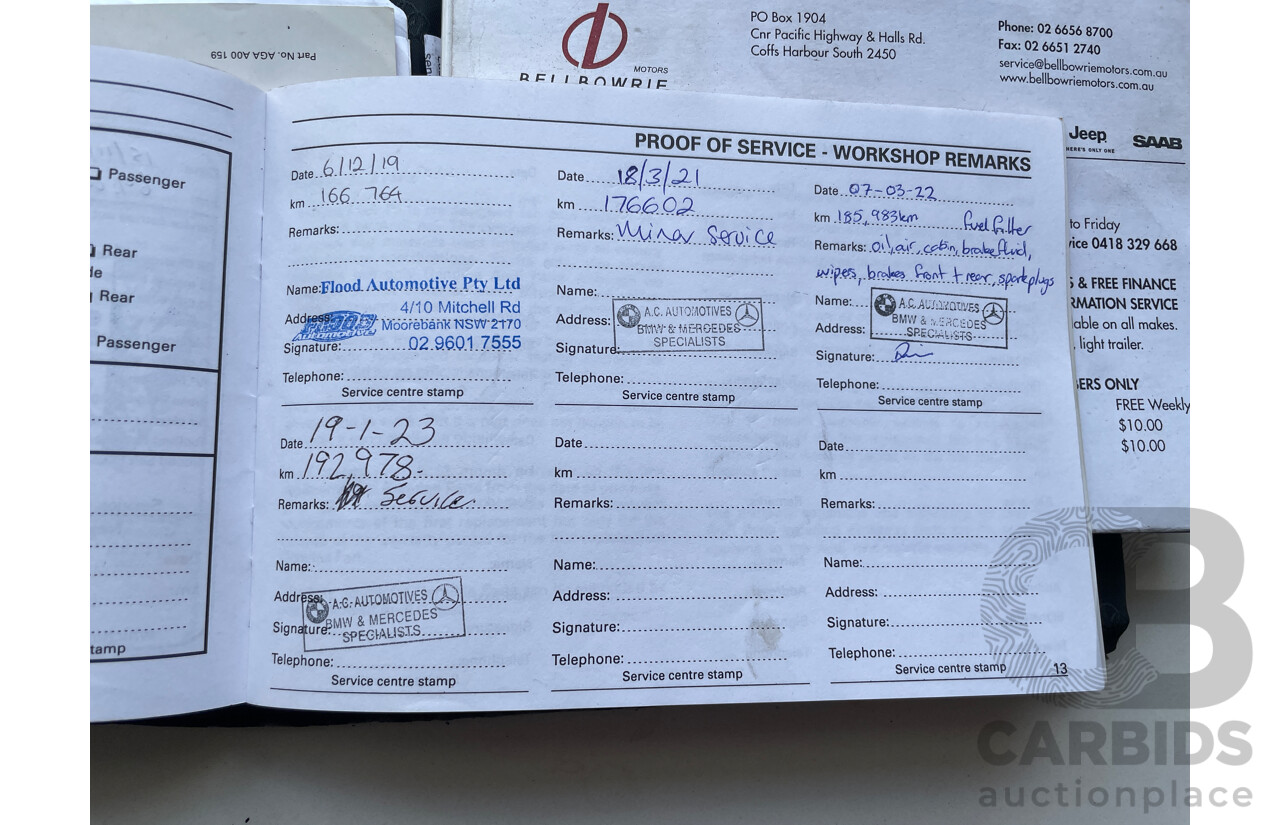 Part No. AGA A00 159
MOTORS
BELLBOWRIE
PO Box 1904
Cnr Pacific Highway & Halls Rd.
Coffs Harbour South 2450
Phone: 02 6656 8700
Fax: 02 6651 2740
service@bellbowriemotors.com.au
www.bellbowriemotors.com.au
Jeep
HERE'S ONLY ONE
SAAB
to Friday
vice 0418 329 668
S & FREE FINANCE
RMATION SERVICE
able on all makes.
light trailer.
ERS ONLY
FREE Weekly
$10.00
$10.00
Passenger
Rear
de
Rear
Passenger
tamp
PROOF OF SERVICE - WORKSHOP REMARKS
Date 6/12/19
km 166 764
Remarks:
Name: Flood Automotive Pty Ltd
Address: 4/10 Mitchell Rd
Moorebank NSW 2170
Signature: 02 9601 7555
Telephone:
Service centre stamp
Date 18/3/21
km 176602
Remarks: Minor Service
Name:
Address:
Signature:
A.C. AUTOMOTIVES
BMW & MERCEDES
SPECIALISTS
Telephone:
Service centre stamp
Date 07-03-22
km 185,983km fuel filter
Remarks: oil, air, cabin, brake fluid,
wipes, brakes front + rear, spark plugs
Name:
Address:
A.C. AUTOMOTIVES
BMW & MERCEDES
SPECIALISTS
Signature:
Telephone:
Service centre stamp
Date 19-1-23
km 192,978-
Remarks: Service
Name:
Address:
Signature:
A.C. AUTOMOTIVES
BMW & MERCEDES
SPECIALISTS
Telephone:
Service centre stamp
Date
km
Remarks:
Name:
Address:
Signature:
Telephone:
Service centre stamp
Date
km
Remarks:
Name:
Address:
Signature:
Telephone:
Service centre stamp
13
CARBIDS
auctionplace